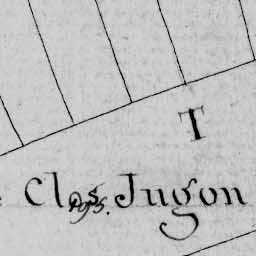 T
Clos Jugon